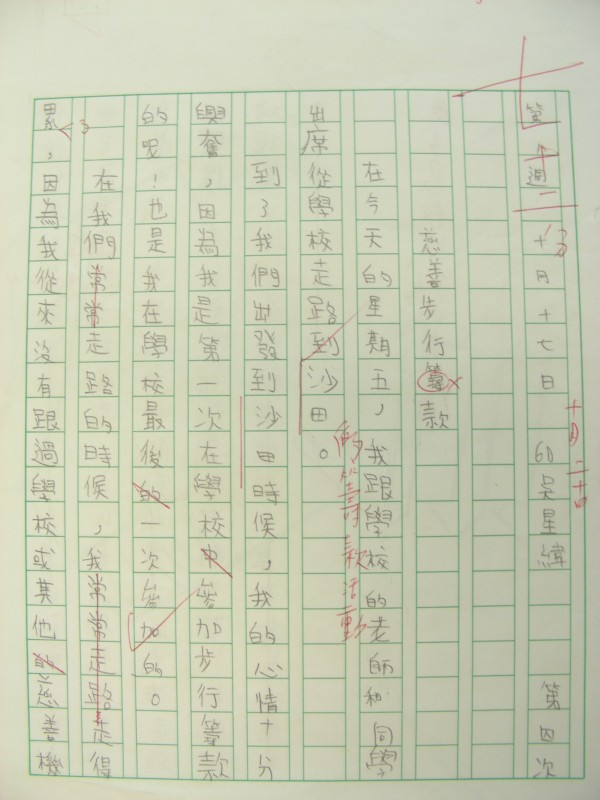 第十週 十月十七日 6D 吳星緯 第四次
十月二十日
慈善步行籌款
在今天的星期五,我跟學校的老師和同學
的籌款活動
出席從學校走路到沙田。
到了我們出發到沙田時候,我的心情十分
興奮,因為我是第一次在學校中參加步行籌款
的呢!也是我在學校最後的一次參加的。
在我們常常走路的時候,我常常走路走得
累,因為我從來沒有跟過學校或其他的慈善機